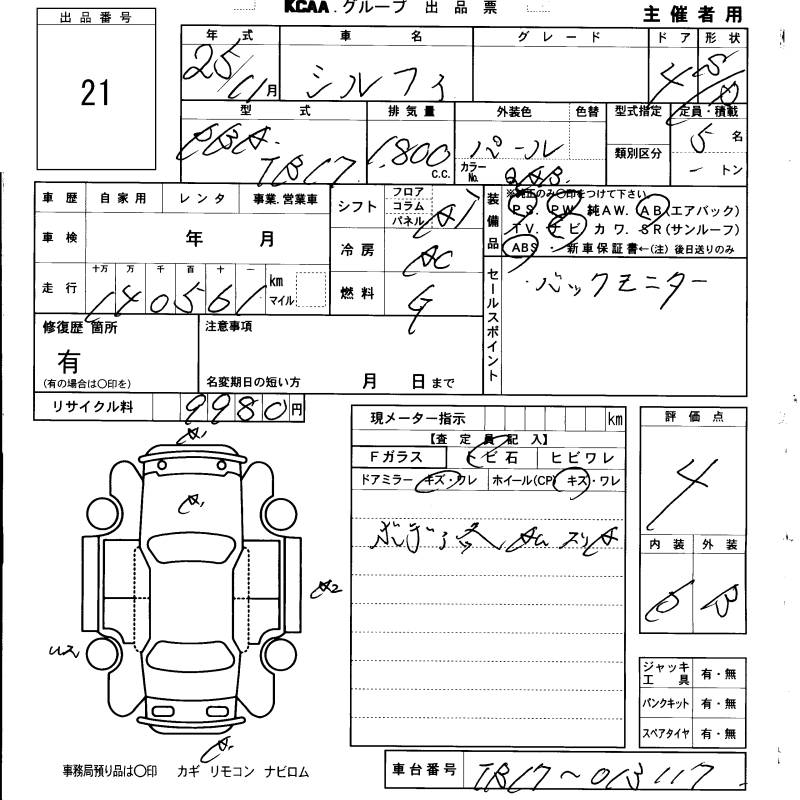 KCAA.グループ 出品票
主催者用
出品番号
21
年式 車名 グレード ドア 形状
25/11月 シルフィ 4
型式 排気量 外装色 色替 型式指定 定員・積載
DBA-TB17 1,800 C.C. パール カラーNo. QAB 類別区分 5名
トン
車歴 自家用 レンタ 事業.営業車
車検 年 月
走行 十万 万 千 百 十 一 km マイル
140561
シフト フロア コラム パネル AT
冷房 AC
燃料 G
装備品
※純正のみ○印をつけて下さい
PS. PW. 純AW. AB(エアバック)
TV. ナビ カワ. SR(サンルーフ)
ABS 新車保証書←(注) 後日送りのみ
セールスポイント
・バックモニター
修復歴 箇所
有
(有の場合は○印を)
注意事項
名変期日の短い方 月 日まで
リサイクル料 9980円
現メーター指示 km
【査定員記入】
Fガラス トビ石 ヒビワレ
ドアミラー キズ・ワレ ホイール(CP) キズ・ワレ
評価点
4
内装 外装
B
A2
ジャッキ工具 有・無
パンクキット 有・無
スペアタイヤ 有・無
事務局預り品は○印 カギ リモコン ナビロム
車台番号 TB17～013117